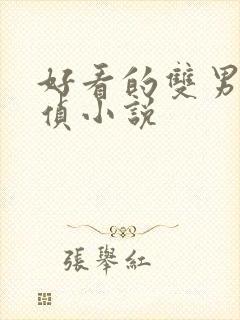 好看的雙男
偵小說
張舉紅